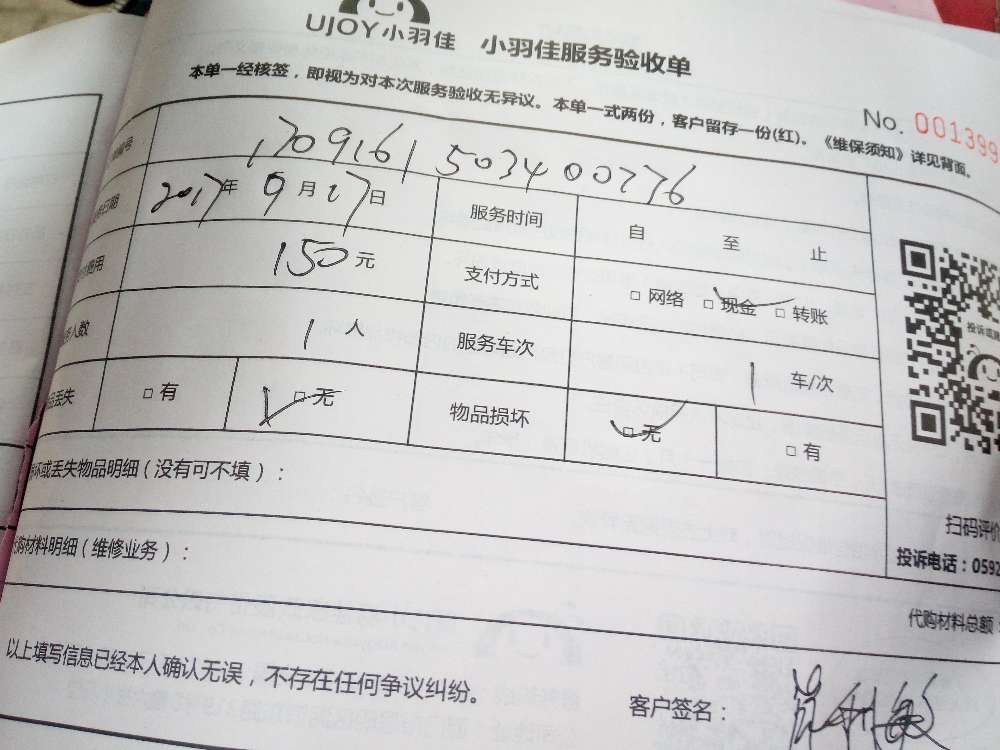 UJOY小羽佳 小羽佳服务验收单
本单一经核签，即视为对本次服务验收无异议。本单一式两份，客户留存一份(红)。《维保须知》详见背面。
No. 001399
号 1709161503400776
日期 2017年9月17日 服务时间 自 至 止
费用 150元 支付方式 □网络 □现金 □转账
人数 1人 服务车次 1 车/次
品丢失 □有 □无 物品损坏 □无 □有
投诉或
坏或丢失物品明细（没有可不填）：
扫码评价
购材料明细（维修业务）：
投诉电话：0592
代购材料总额：
以上填写信息已经本人确认无误，不存在任何争议纠纷。
客户签名：